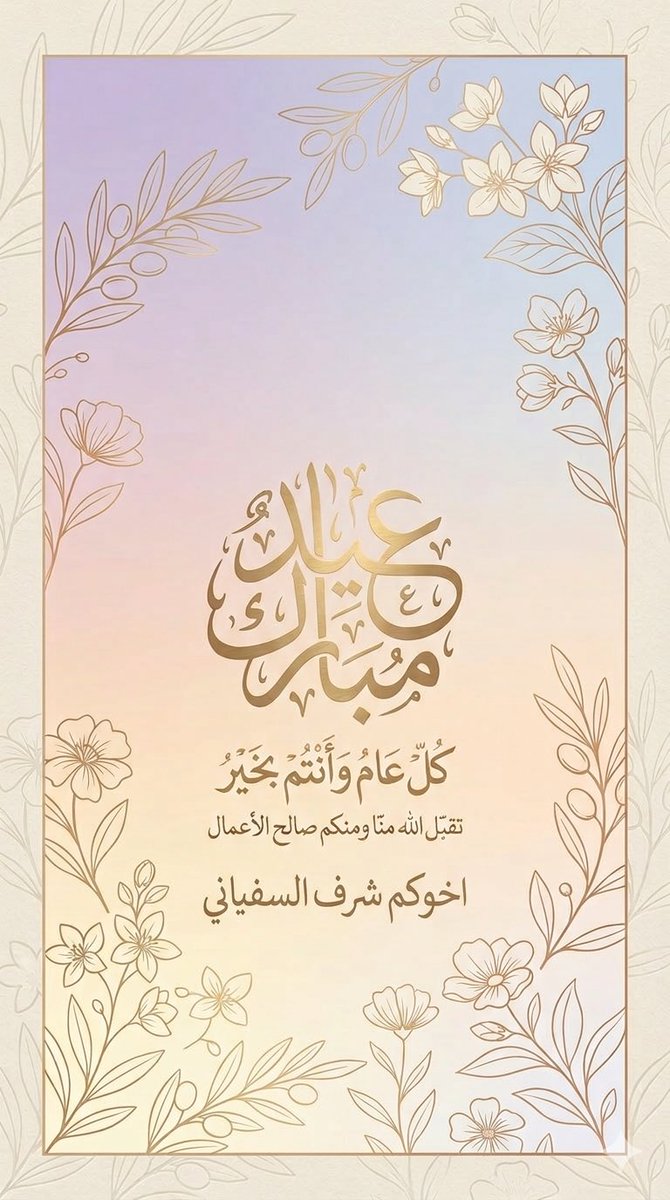 عيد
مُبَارَك
كُلّ عَامُ وَأَنْتُمْ بخَيْرُ
تقبّل الله منّا ومنكم صالح الأعمال
اخوكم شرف السفياني